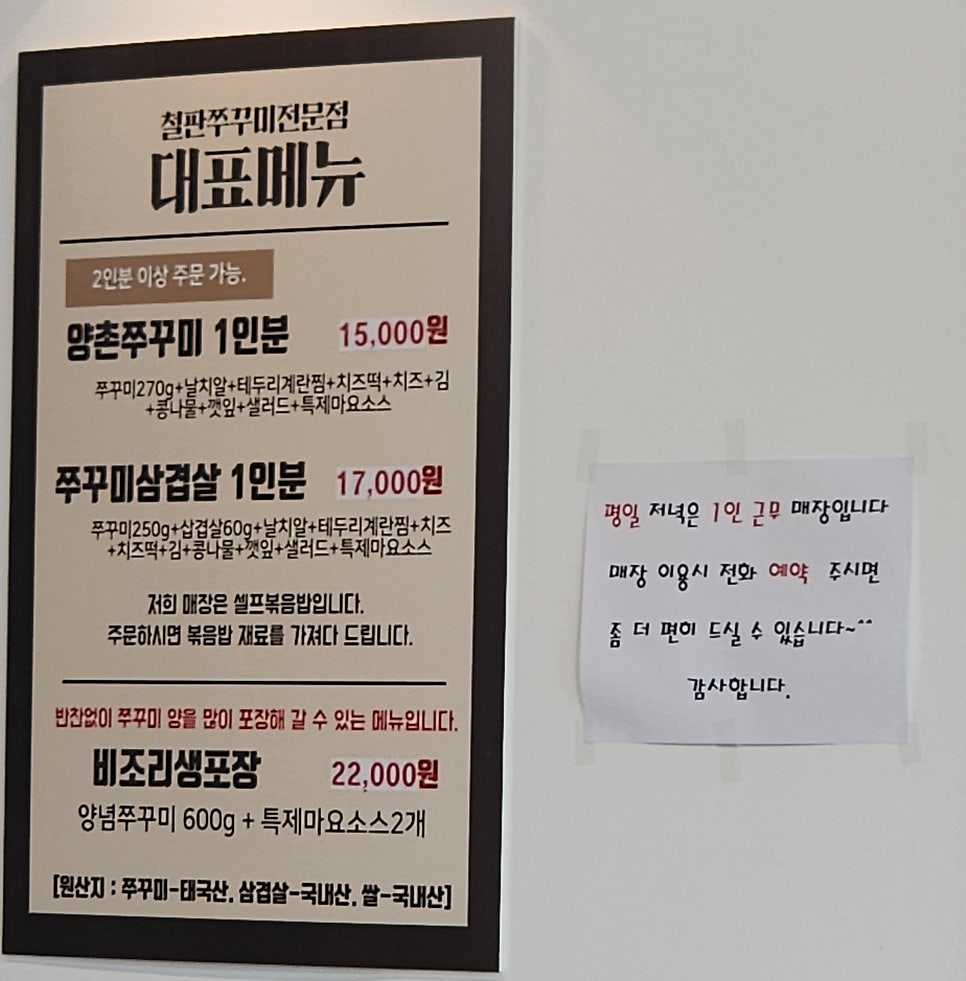 철판쭈꾸미전문점
대표메뉴
2인분 이상 주문 가능.
양촌쭈꾸미 1인분 15,000원
쭈꾸미270g+날치알+테두리계란찜+치즈떡+치즈+김
+콩나물+깻잎+샐러드+특제마요소스
쭈꾸미삼겹살 1인분 17,000원
쭈꾸미250g+삽겹살60g+날치알+테두리계란찜+치즈
+치즈떡+김+콩나물+깻잎+샐러드+특제마요소스
저희 매장은 셀프볶음밥입니다.
주문하시면 볶음밥 재료를 가져다 드립니다.
반찬없이 쭈꾸미 양을 많이 포장해 갈 수 있는 메뉴입니다.
비조리생포장 22,000원
양념쭈꾸미 600g + 특제마요소스2개
[원산지 : 쭈꾸미-태국산, 삼겹살-국내산, 쌀-국내산]
평일 저녁은 1인 근무 매장입니다
매장 이용시 전화 예약 주시면
좀 더 편히 드실 수 있습니다~^^
감사합니다.